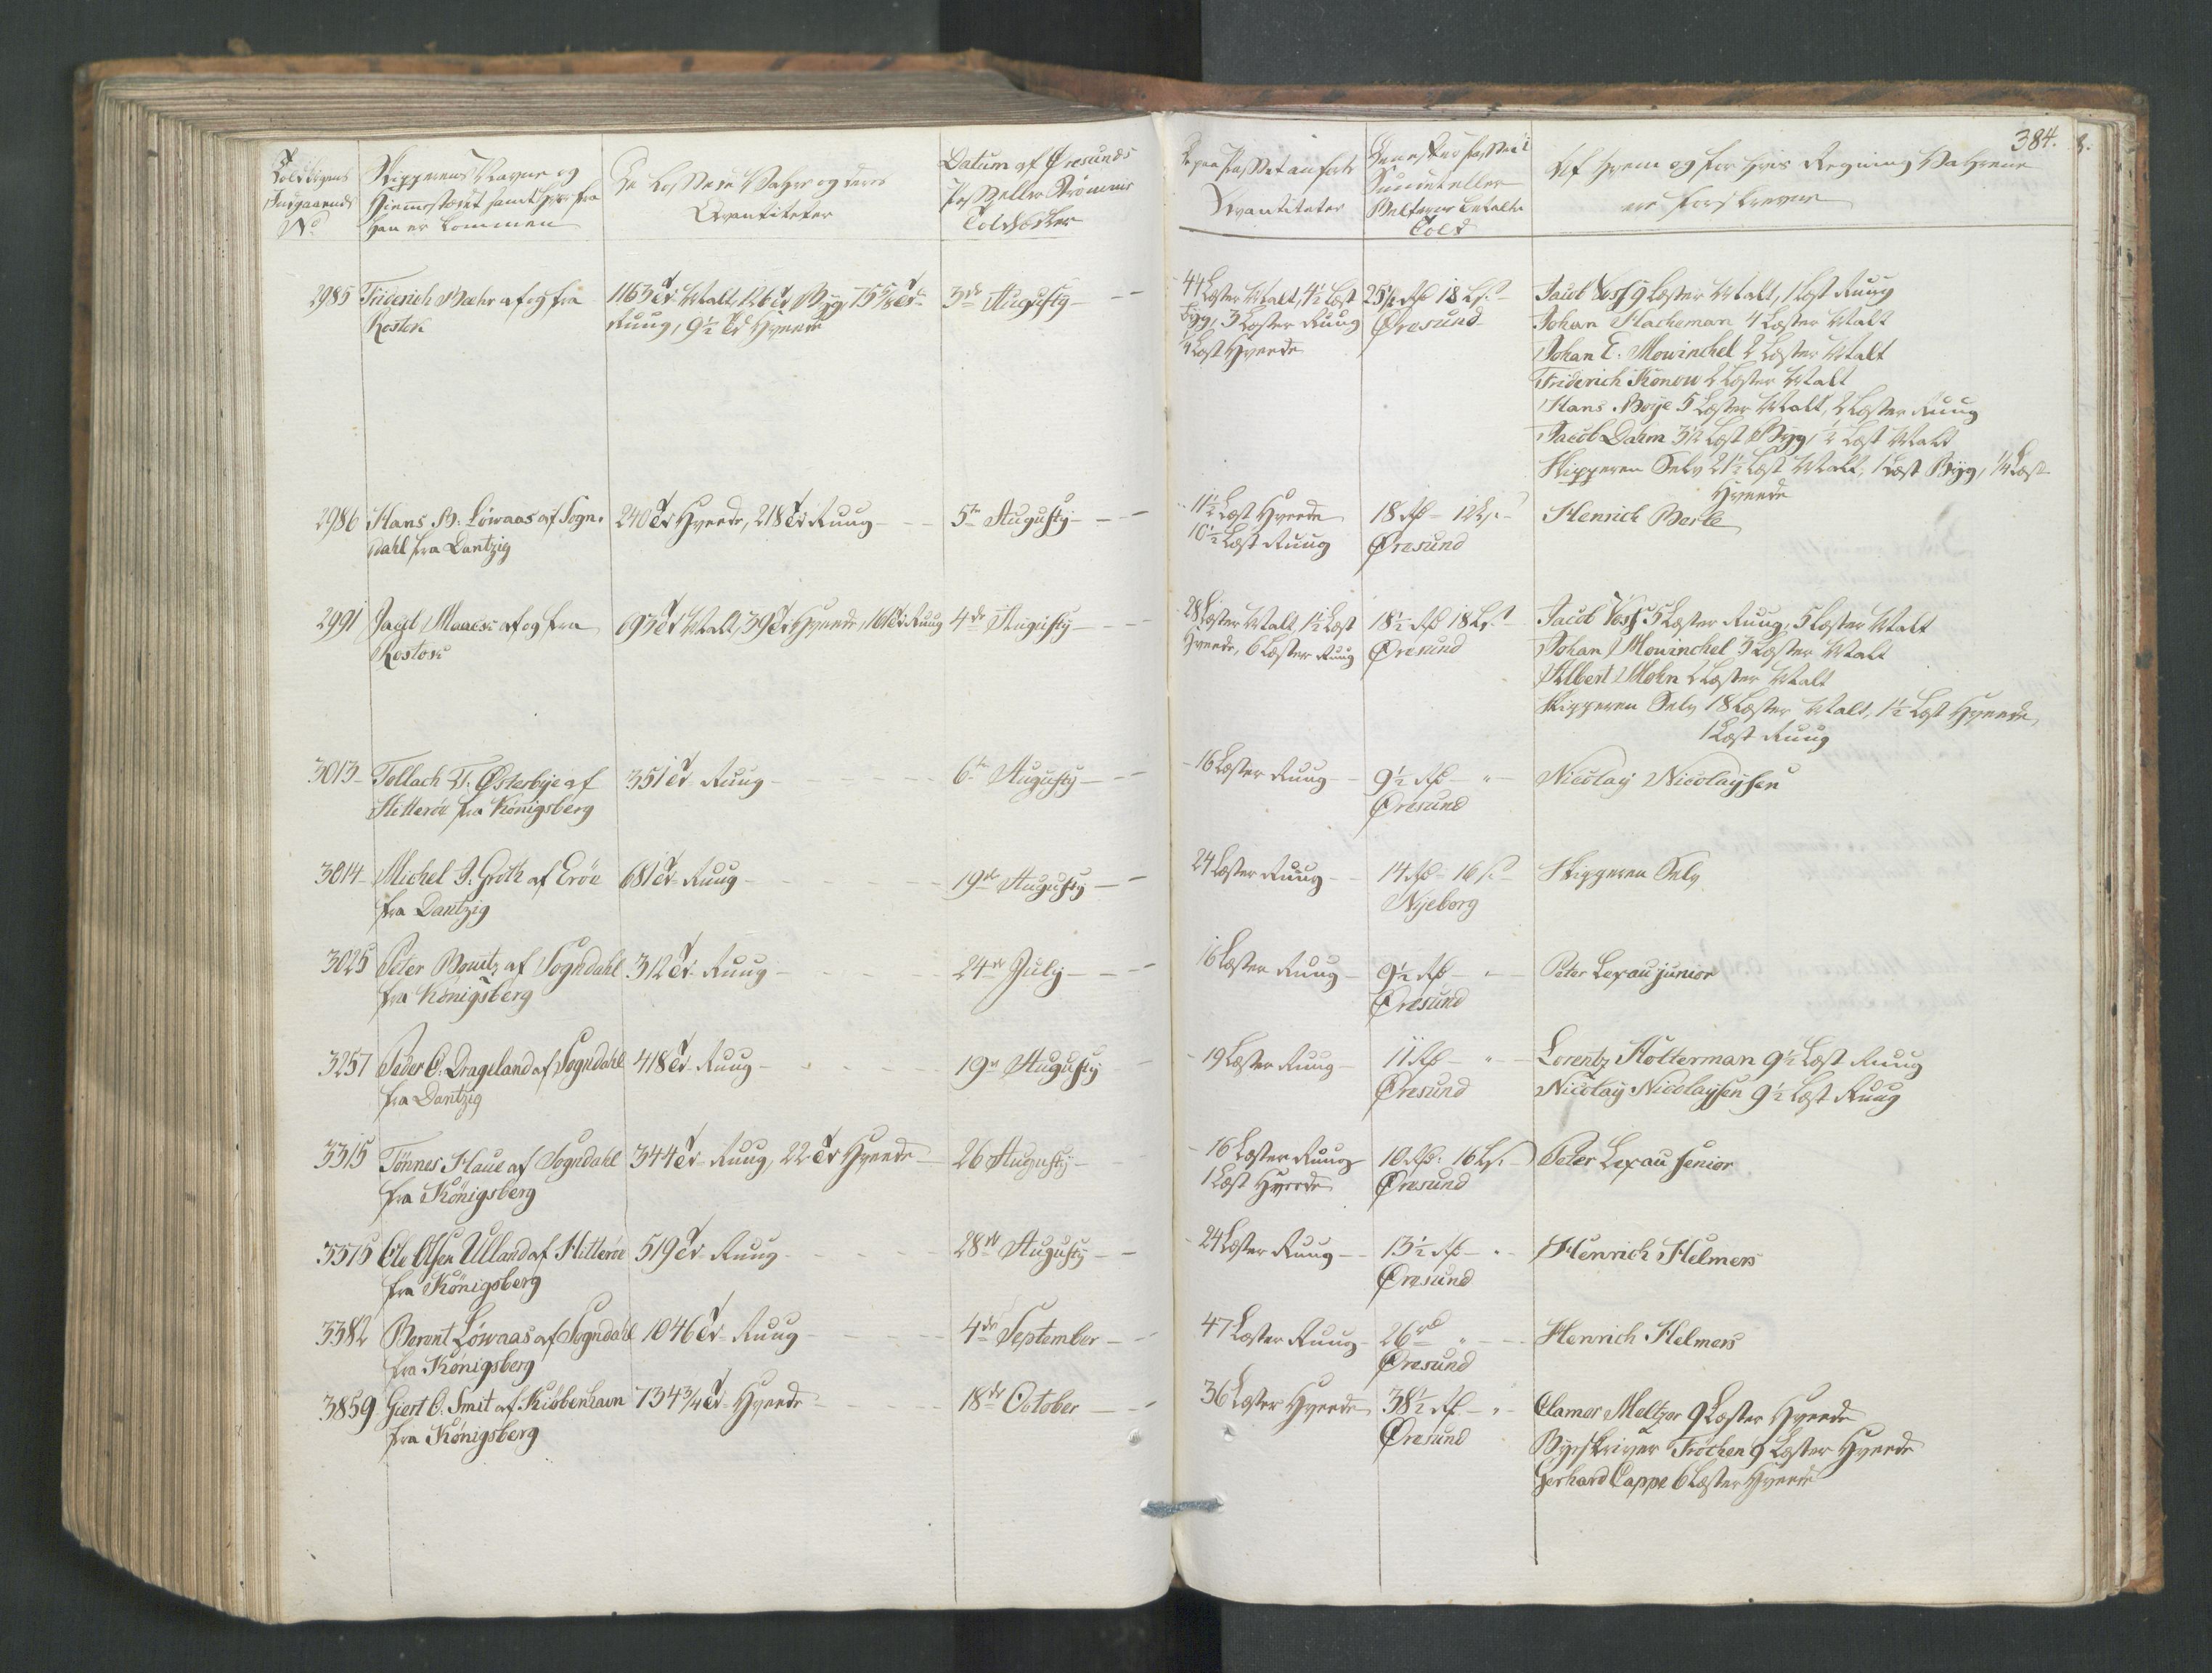 384.
Toldbogens
Indgaaende
No
Skipperens Navne og
Hiemstædet samt hvor fra
han er kommen
De lossede Vahre og deres
Qvantiteter
Datum af Øresunds
Pas Zeller Strømmens
Told
De paa Passet anførte
Kvantiteter
Sundet eller
Belterne betalte
Told
Af hvem og for hvis Regning Vahrene
ere forskrevne
2985 Friderich Beehr af og fra
Rostok
1163 Td Malt, 126 Td Byg, 75 5/8 Td
Ruug, 9½ Td Hveede
3de Augusty
44 Læster Malt, 4½ Læst
Byg, 3 Læster Ruug
¼ Læst Hveede
25½ Rd 18 Ls.
Øresund
Jacob Voss 9 Læster Malt, 1 Læst Ruug
Johan Hacheman 4 Læster Malt
Johan E. Mowinchel 2 Læster Malt
Friderich Konow 2 Læster Malt
Hans Boye 5 Læster Malt, 2 Læster Ruug
Jacob Dahm 3½ Læst Byg, ½ Læst Malt
Skipperen Selv 21½ Læst Malt, 1 Læst Byg, ¼ Læst
Hveede
2986 Hans B. Löwaas af Sogn.
dahl fra Dantzig
240 Td Hveede, 218 Td Ruug
5te Augusty
11½ Læst Hveede
10½ Læst Ruug
18 Rd 12 Ls.
Øresund
Henrich Berle
2991 Jacob Maass af og fra
Rostok
693 Td Malt, 39 Td Hveede, 161 Td Ruug
4de Augusty
28 Læster Malt, 1½ Læst
Hveede, 6 Læster Ruug
18½ Rd 18 Ls.
Øresund
Jacob Voss 5 Læster Ruug, 5 Læster Malt
Johan Mowinchel 3 Læster Malt
Albert Mohn 2 Læster Malt
Skipperen Selv 18 Læster Malt, 1½ Læst Hveede,
1 Læst Ruug
3013 Tollach T. Østerbye af
Hitterøe fra Königsberg
351 Td Ruug
6te Augusty
16 Læster Ruug
9½ Rd
Øresund
Nicolay Nicolaysen
3014 Michel J. Groth af Erøe
fra Dantzig
681 Td Ruug
19de Augusty
24 Læster Ruug
14 Rd 16 s.
Nyeborg
Skipperen Selv
3025 Peter Bountz af Sogndahl
fra Königsberg
312 Td Ruug
24de July
16 Læster Ruug
9½ Rd
Øresund
Peter Lexau junior
3257 Peder O. Drageland af Sogndahl
fra Dantzig
418 Td Ruug
19de Augusty
19 Læster Ruug
11 Rd
Øresund
Lorentz Holterman 9½ Læst Ruug
Nicolay Nicolaysen 9½ Læst Ruug
3315 Tönnes Haue af Sogndahl
fra Königsberg
344 Td Ruug, 22 Td Hveede
26 Augusty
16 Læster Ruug
1 Læst Hveede
10 Rd 16 Ls.
Øresund
Peter Lexau Senior
3375 Ole Olsen Ulland af Hitterøe
fra Königsberg
519 Td Ruug
28de Augusty
24 Læster Ruug
13½ Rd
Øresund
Henrich Helmers
3382 Berent Löwaas af Sogndahl
fra Königsberg
1046 Td Ruug
4de September
47 Læster Ruug
26 rd
Øresund
Henrich Helmers
3859 Giert C. Smit af Kiøbenhavn
fra Königsberg
734¾ Td Hveede
18de October
36 Læster Hveede
38½ Rd
Øresund
Clamer Meltzer 9 Læster Hveede
Byeskriver Fröchen 9 Læster Hveede
Gerhard Cappe 6 Læster Hveede